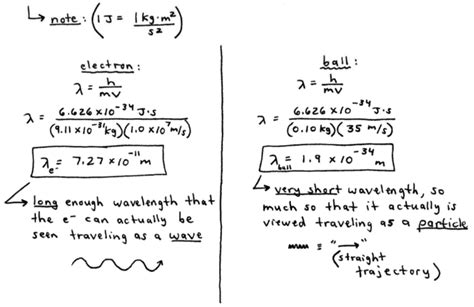 ↳ note: (1 J = 1 kg·m² / s²)
electron:
λ = h / mv
λ = 6.626 × 10⁻³⁴ J·s / (9.11 × 10⁻³¹ kg)(1.0 × 10⁷ m/s)
λe⁻ = 7.27 × 10⁻¹¹ m
↳ long enough wavelength that
the e⁻ can actually be
seen traveling as a wave
ball:
λ = h / mv
λ = 6.626 × 10⁻³⁴ J·s / (0.10 kg)(35 m/s)
λball = 1.9 × 10⁻³⁴ m
↳ very short wavelength, so
much so that it actually is
viewed traveling as a particle
≡ "→"
(straight
trajectory)